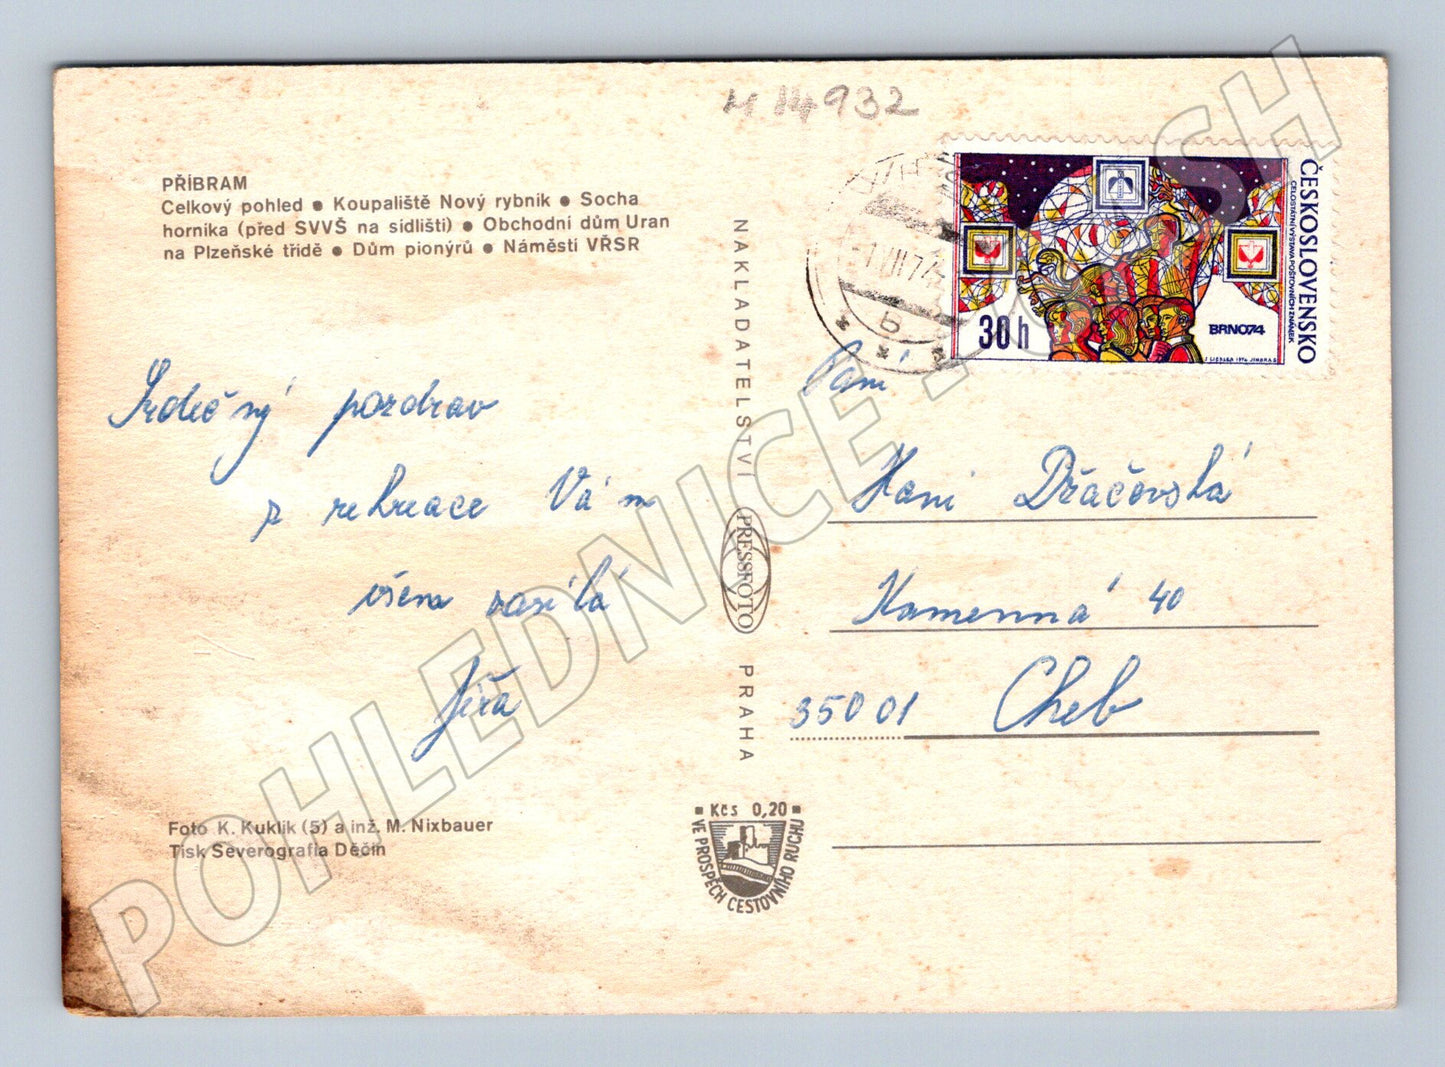 M 14932
PŘÍBRAM
Celkový pohled ● Koupaliště Nový rybník ● Socha
horníka (před SVVŠ na sídlišti) ● Obchodní dům Uran
na Plzeňské třídě ● Dům pionýrů ● Náměstí VŘSR
Srdečný pozdrav
z rekreace Vám
všem zasílá
Jiřa
Foto K. Kuklík (5) a inž. M. Nixbauer
Tisk Severografia Děčín
NAKLADATELSTVÍ
PRESSFOTO
PRAHA
Kčs 0,20
VE PROSPĚCH CESTOVNÍHO RUCHU
-1.VII.74
b
ČESKOSLOVENSKO
CELOSTÁTNÍ VÝSTAVA POŠTOVNÍCH ZNÁMEK
BRNO74
30 h
Paní
Hani Držačovská
Kamenná 40
35001 Cheb
POHLEDNICE.SH